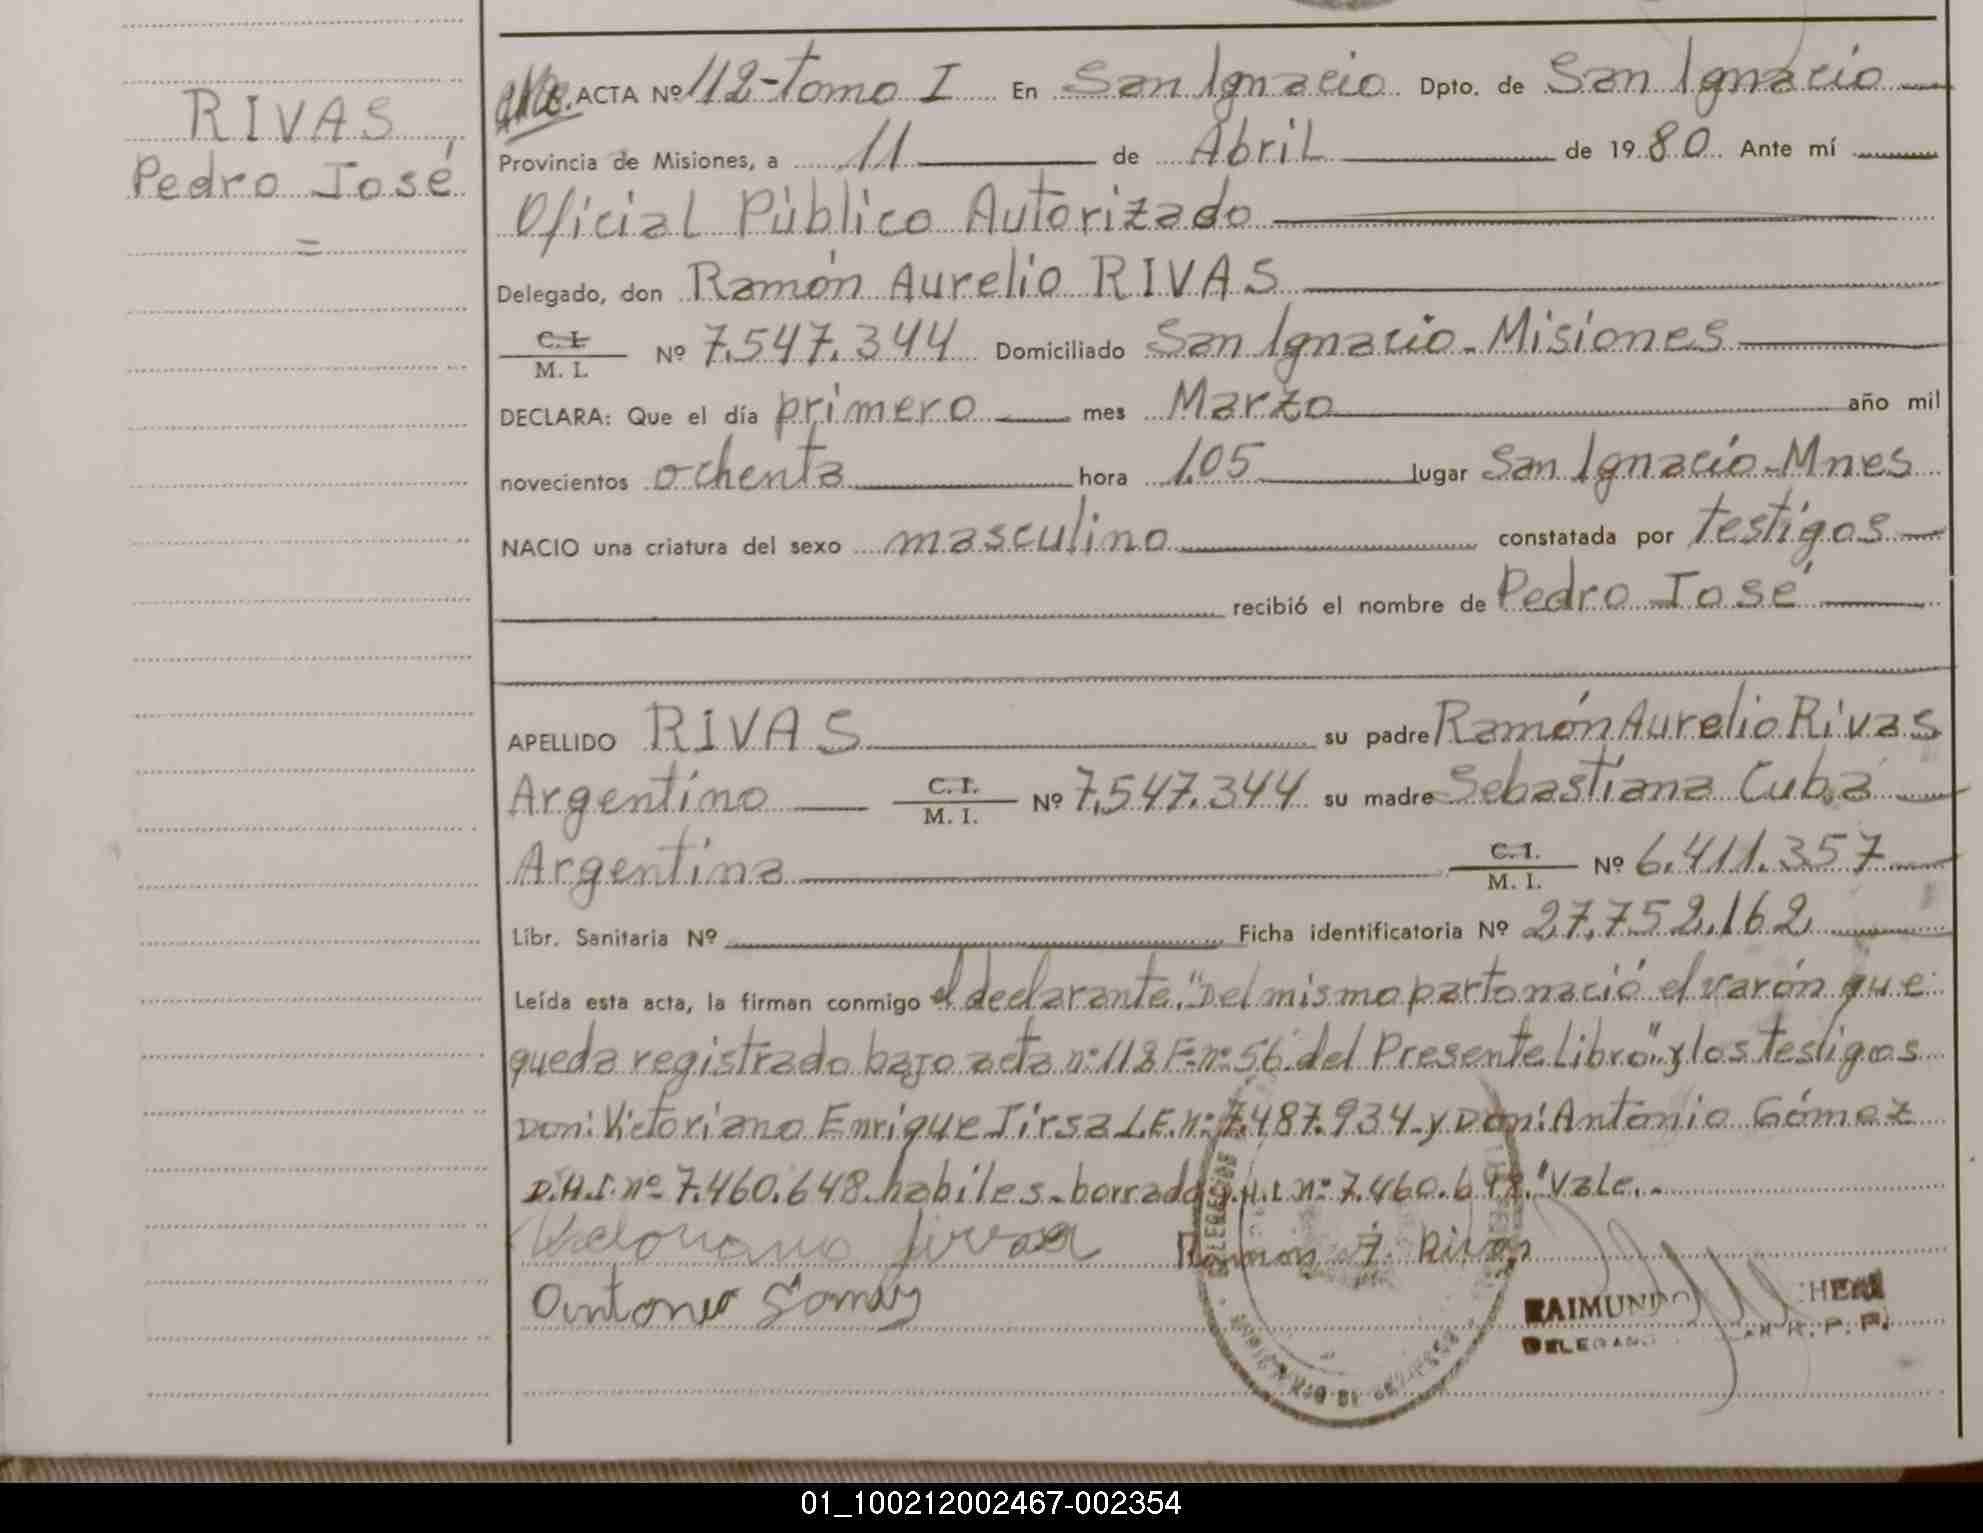 RIVAS
Pedro José
=
ACTA Nº 112-Tomo I En San Ignacio Dpto. de San Ignacio
Provincia de Misiones, a 11 de Abril de 1980 Ante mí
Oficial Público Autorizado
Delegado, don Ramón Aurelio RIVAS
C.I. M.I. Nº 7.547.344 Domiciliado San Ignacio-Misiones
DECLARA: Que el día primero mes Marzo año mil
novecientos ochenta hora 1.05 lugar San Ignacio-Mnes
NACIO una criatura del sexo masculino constatada por testigos
recibió el nombre de Pedro José
APELLIDO RIVAS su padre Ramón Aurelio Rivas
Argentino C.I. M.I. Nº 7.547.344 su madre Sebastiana Cuba
Argentina C.I. M.I. Nº 6.411.357
Libr. Sanitaria Nº Ficha identificatoria Nº 27.752.162
Leída esta acta, la firman conmigo el declarante. "Del mismo parto nació el varón que
queda registrado bajo acta nº 118 Fº nº 56 del Presente Libro" y los testigos
Don: Victoriano Enrique Jirsa L.E. nº 7.487.934 y Don: Antonio Gómez
D.N.I. nº 7.460.648 habiles.- borrado D.N.I. nº 7.460.648 "Vale.-
Victoriano Jirsa Ramon A. Rivas
Antonio Gomez
RAIMUNDO
DELEGADO R.P.P.
01_100212002467-002354